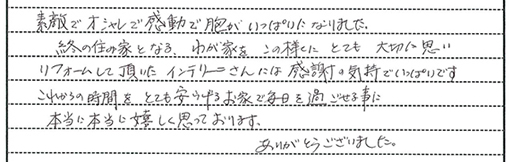 素敵でオシャレで感動で胸がいっぱいになりました。
終の住の家となる、わが家をこの様にとても大切に思い
リフォームして頂いたインテリーさんには感謝の気持でいっぱいです
これからの時間をとても安らげるお家で毎日を過ごせる事に
本当に本当に嬉しく思っております。
ありがとうございました。